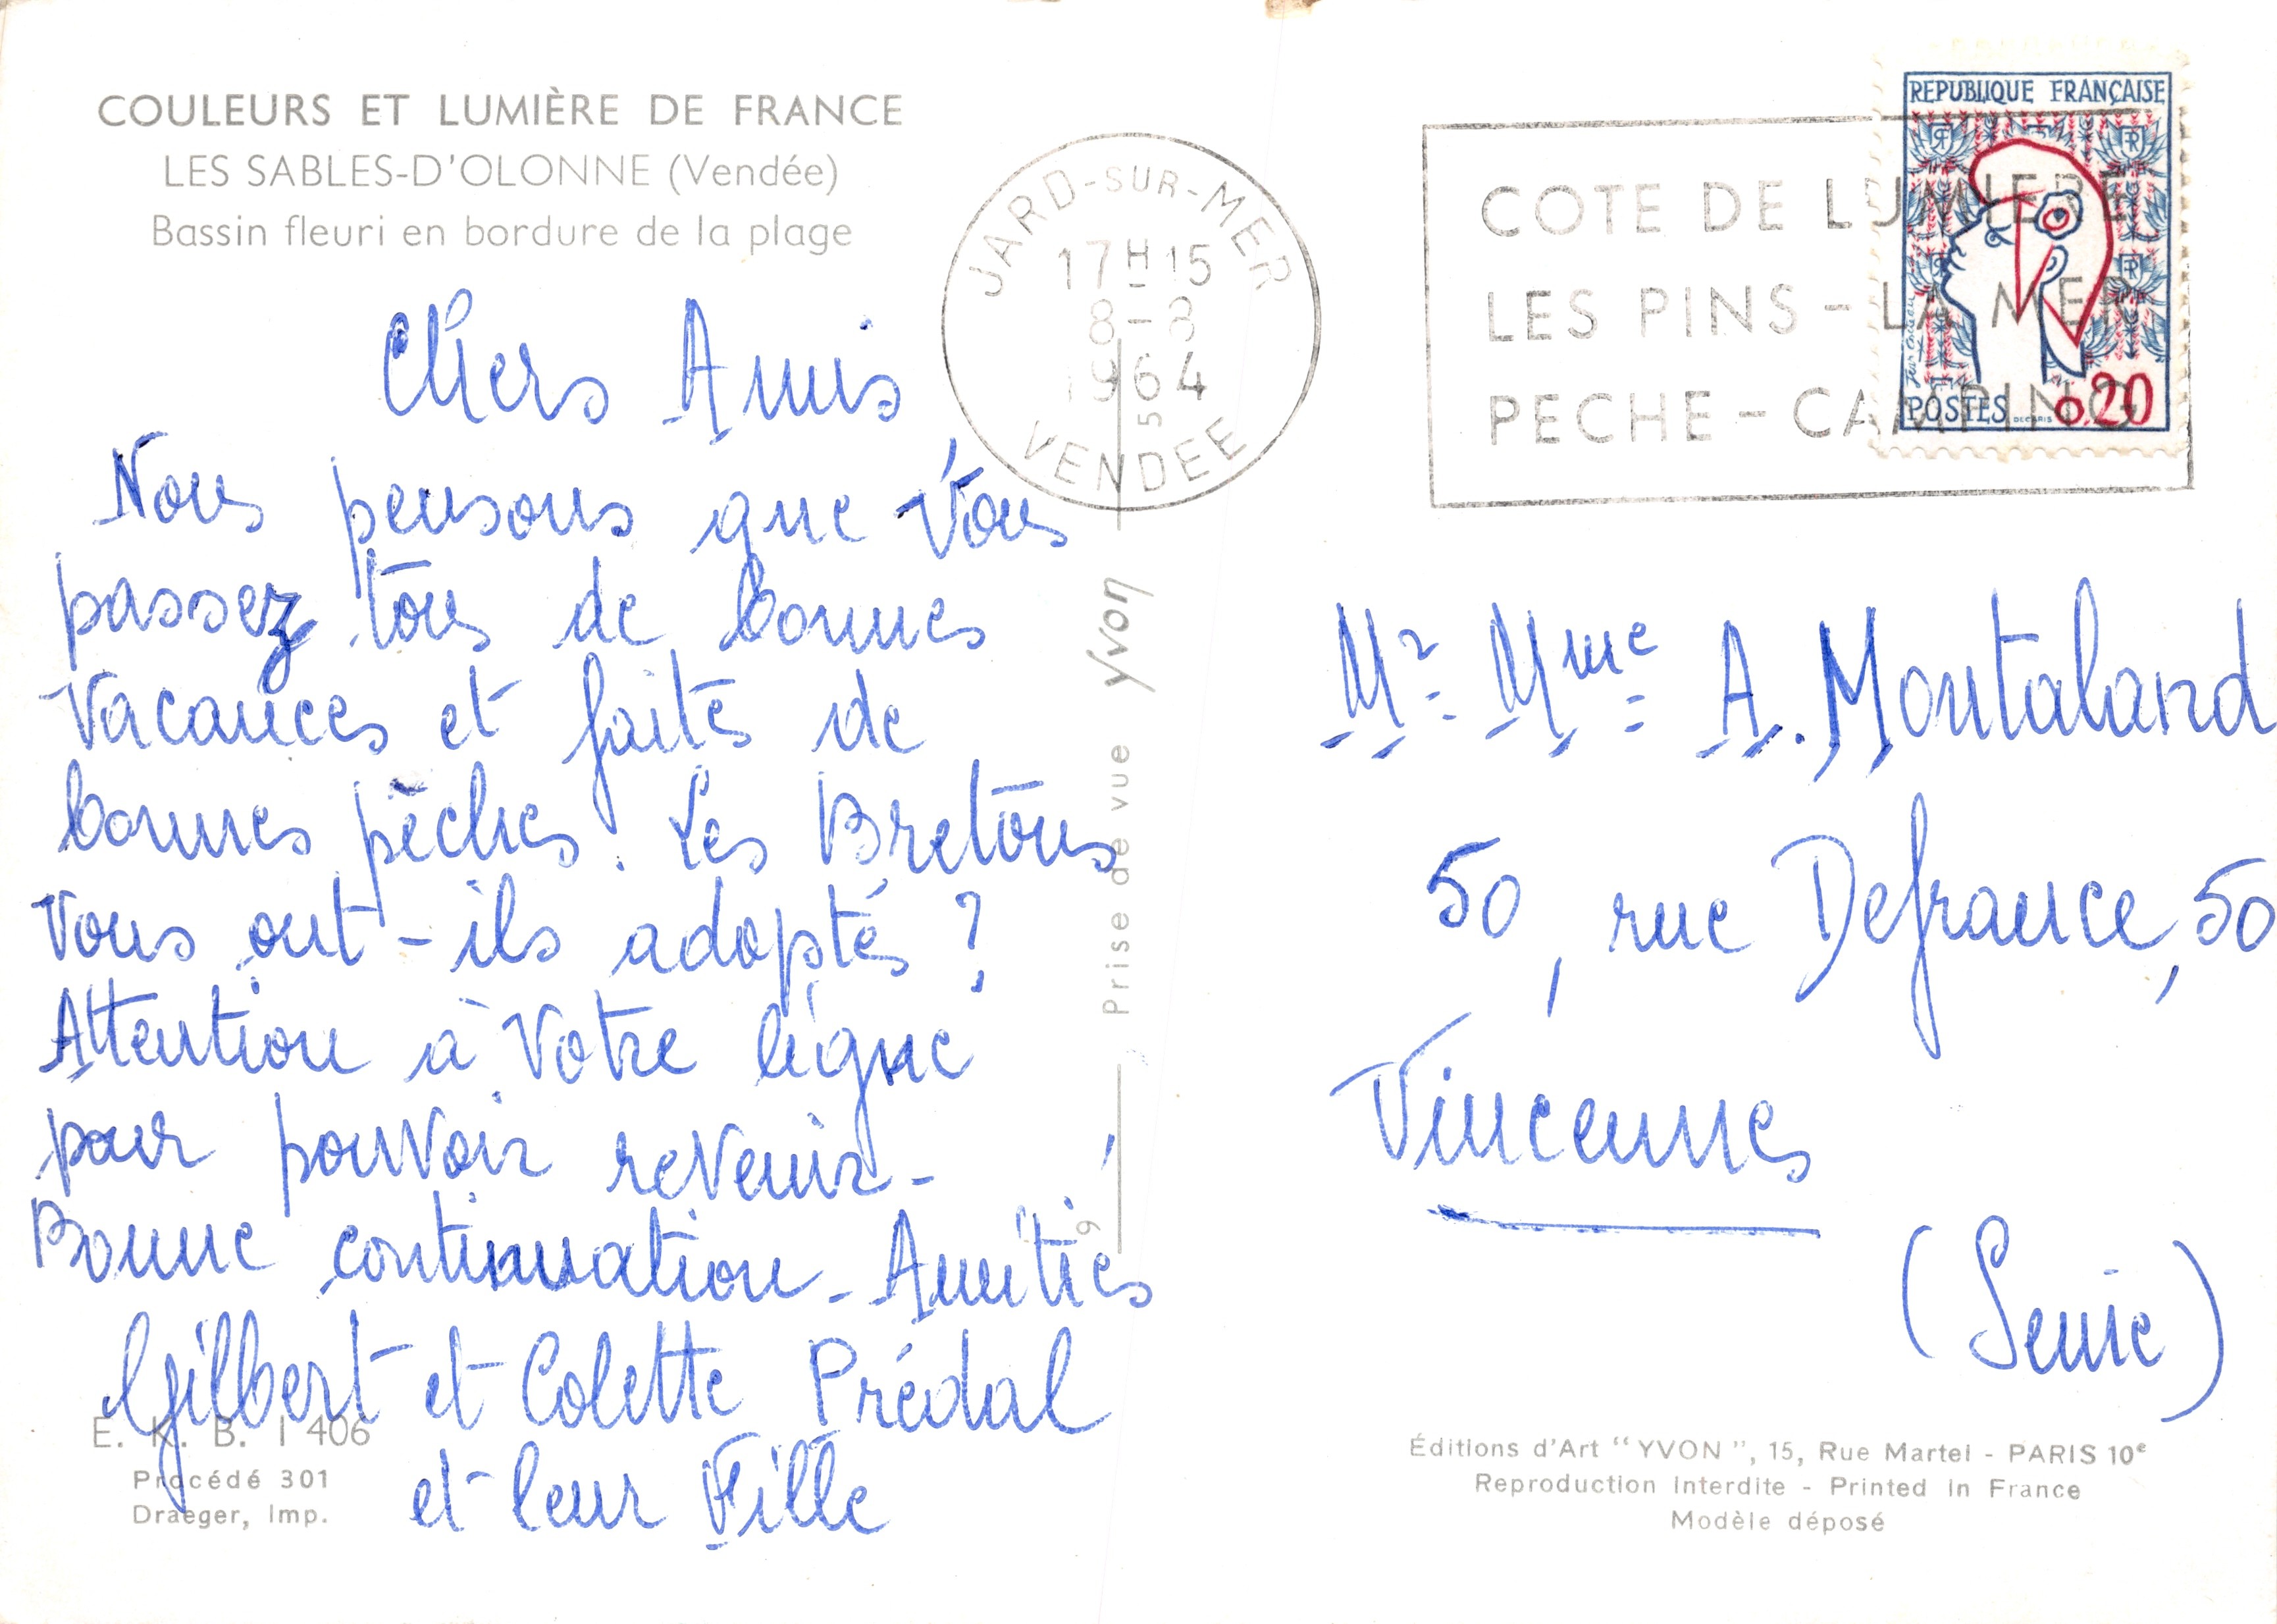 COULEURS ET LUMIÈRE DE FRANCE
LES SABLES-D'OLONNE (Vendée)
Bassin fleuri en bordure de la plage
JARD-SUR-MER
17H15
8-8
1964
5
VENDEE
COTE DE LUMIERE
LES PINS - LA MER
PECHE - CAMPING
REPUBLIQUE FRANÇAISE
Jean Cocteau
POSTES DECARIS 0,20
Chers Amis
Nous pensons que Vous
passez tous de bonnes
Vacances et faites de
bonnes pêches. Les Bretons
Vous ont-ils adoptés ?
Attention à Votre ligne
pour pouvoir revenir -
Bonne continuation - Amitiés
Gilbert et Colette Prédal
et leur Fille
Prise de vue Yvon
9
Mr Mme A. Montaland
50, rue Defrance, 50
Vincennes
(Seine)
E. K. B. I 406
Procédé 301
Draeger, Imp.
Éditions d'Art “YVON”, 15, Rue Martel - PARIS 10e
Reproduction Interdite - Printed in France
Modèle déposé